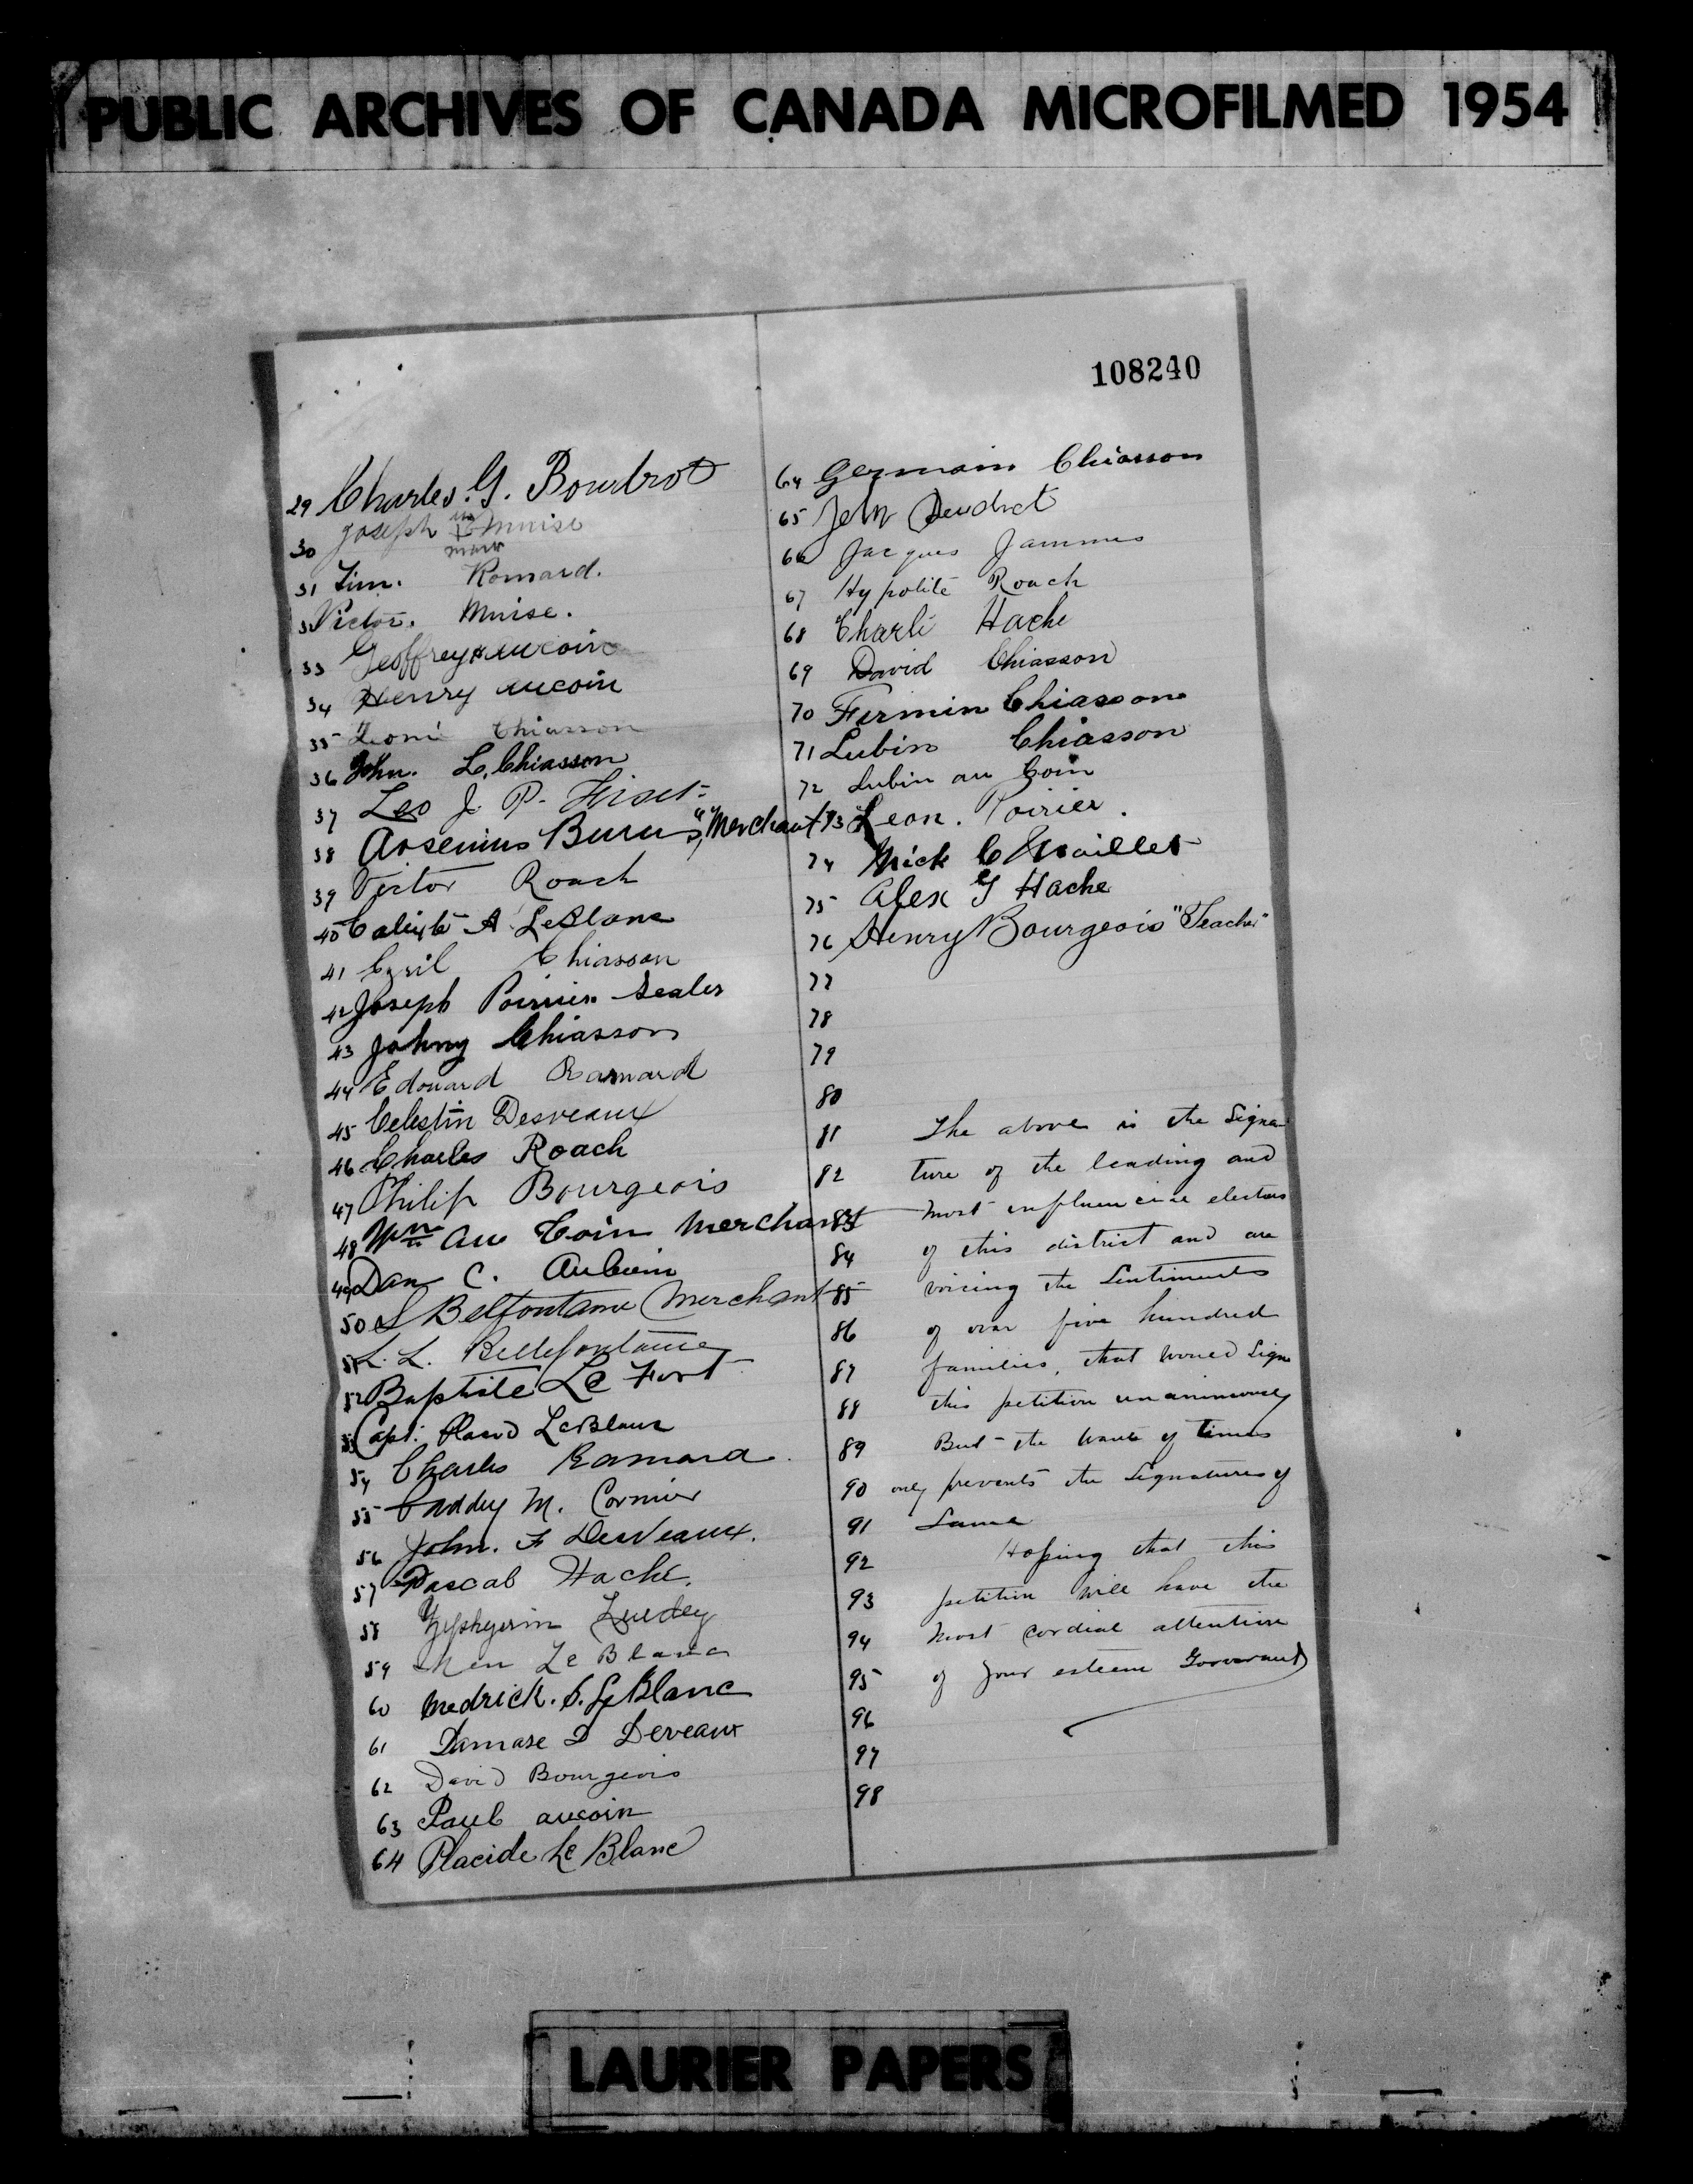 PUBLIC ARCHIVES OF CANADA MICROFILMED 1954
108240
29 Charles. G. Boudrot
30 Joseph his X mark Muise
31 Tim. Romard.
32 Victor. Muise.
33 Geoffrey Aucoin
34 Henry Aucoin
35 Leonie Chiasson
36 John. L. Chiasson
37 Leo J. P. Fiset
38 Arsenius Burns, "Merchant"
39 Victor Roach
40 Calixte A LeBlanc
41 Cyril Chiasson
42 Joseph Poirier Sealer
43 Johny Chiasson
44 Edouard Ramard
45 Celestin Desveaux
46 Charles Roach
47 Philip Bourgeois
48 Wm Au Coin Merchant
49 Dan C. AuCoin
50 S Belfontaine Merchant
51 L. L. Bellefontaine
52 Baptiste Le Fort
53 Capt. Placid LeBlanc
54 Charles Ramard.
55 Caddey M. Cormier
56 John. F DesVeaux.
57 Pascal Hache.
58 Zepherin
59 LeBlanc
60 Medrick. S. LeBlanc
61 Damase D Deveaux
62 David Bourgeois
63 Paul aucoin
64 Placide Le Blanc
64 Germain Chiasson
65 John Boudrot
66 Jacques Jammes
67 Hypolite Roach
68 Charlé Hache
69 David Chiasson
70 Firmin Chiasson
71 Lubin Chiasson
72 Lubin au Coin
73 Leon. Poirier.
74 Mick C Maillet
75 Alex G Hache
76 Henry Bourgeois "Teacher"
77
78
79
80
81 The above is the Signa
82 ture of the leading and
83 most influencial electors
84 of this district and are
85 voicing the Sentiments
86 of over five hundred
87 families, that would Sign
88 this petition unanimously
89 But the want of times
90 only prevents the Signatures of
91 Same
92 Hoping that this
93 petition will have the
94 most cordial attention
95 of your esteem
96
97
98
LAURIER PAPERS